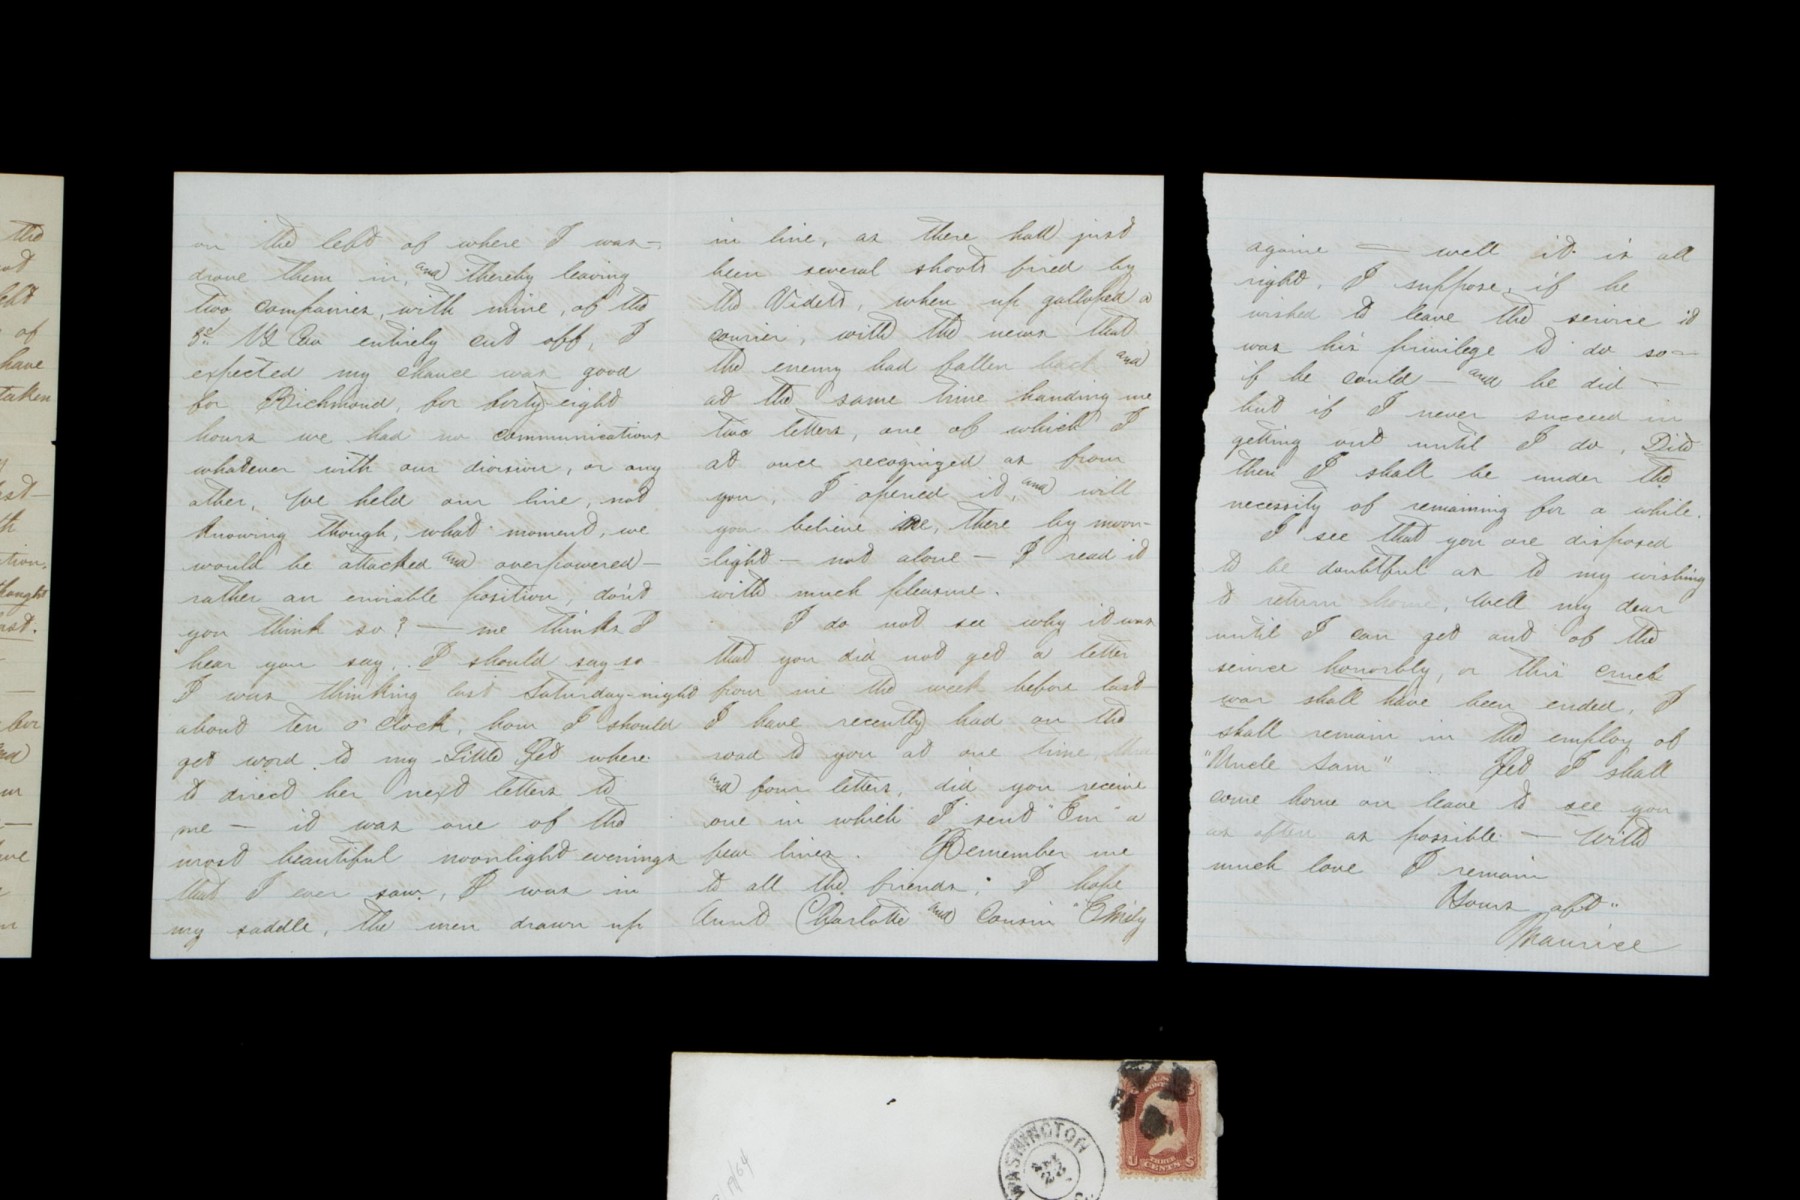 the
of
have
taken
on the left of where I was –
drove them in, and thereby leaving
two companies, with mine, of the
3d NJ Cav entirely cut off, I
expected my chance was good
for Richmond, for forty-eight
hours we had no communications
whatever with our division, or any
other, We held our line, not
knowing though, what moment, we
would be attacked and overpowered –
rather an enviable position, don't
you think so? – me thinks I
hear you say, I should say so
I was thinking last Saturday-night
about ten o'clock, how I should
get word to my Little Pet where
to direct her next letters to
me – it was one of the
most beautiful moonlight evenings
that I ever saw, I was in
my saddle, the men drawn up
in line, as there had just
been several shoots fired by
the Videtts, when up galloped a
courier, with the news that
the enemy had fallen back and
at the same time handing me
two letters, one of which I
at once recoginzed as from
you, I opened it, and will
you believe me, there by moon-
-light – not alone – I read it
with much pleasure.
I do not see why it was
that you did not get a letter
from me the week before last –
I have recently had on the
road to you at one time three
and four letters, did you receive
one in which I sent "Em" a
few lines. Remember me
to all the friends; I hope
Aunt Charlotte and Cousin "Emily
againe – well it is all
right, I suppose, if he
wished to leave the service it
was his privilege to do so –
if he could – and he did –
but if I never succeed in
getting out until I do, Dito
then I shall be under the
necessity of remaining for a while.
I see that you are disposed
to be doubtful as to my wishing
to return home, Well my dear
until I can get out of the
service honorbly, or this cruel
war shall have been ended, I
shall remain in the employ of
"Uncle Sam" . Yet I shall
come home on leave to see you
as often as possible – With
much love I remain
Yours afft"
Maurice
WASHINGTON
U THREE CENTS S